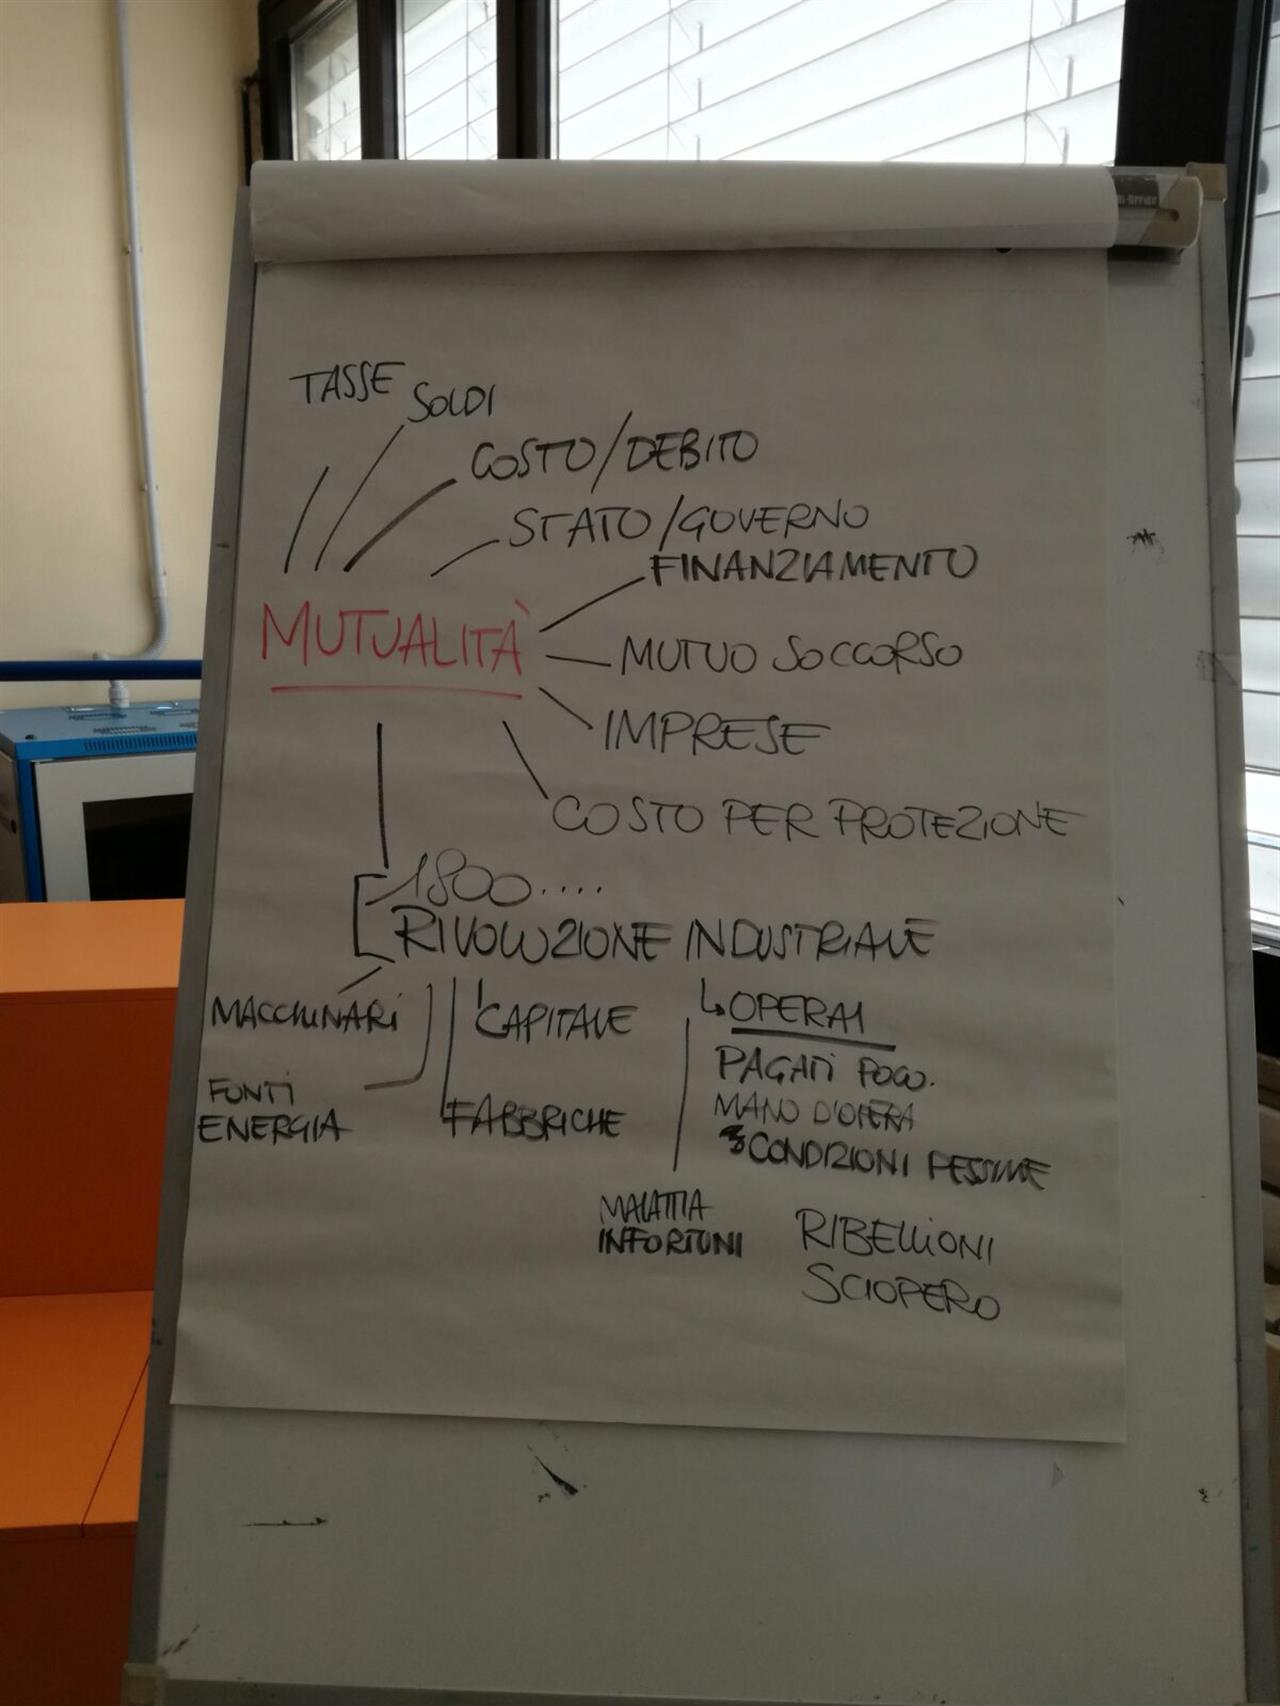 TASSE
SOLDI
COSTO/DEBITO
STATO/GOVERNO
FINANZIAMENTO
MUTUALITÀ
MUTUO SOCCORSO
IMPRESE
COSTO PER PROTEZIONE
1800....
RIVOLUZIONE INDUSTRIALE
MACCHINARI
CAPITALE
OPERAI
PAGATI POCO.
FONTI
ENERGIA
FABBRICHE
MANO D'OPERA
CONDIZIONI PESSIME
MALATTIA
INFORTUNI
RIBELLIONI
SCIOPERO